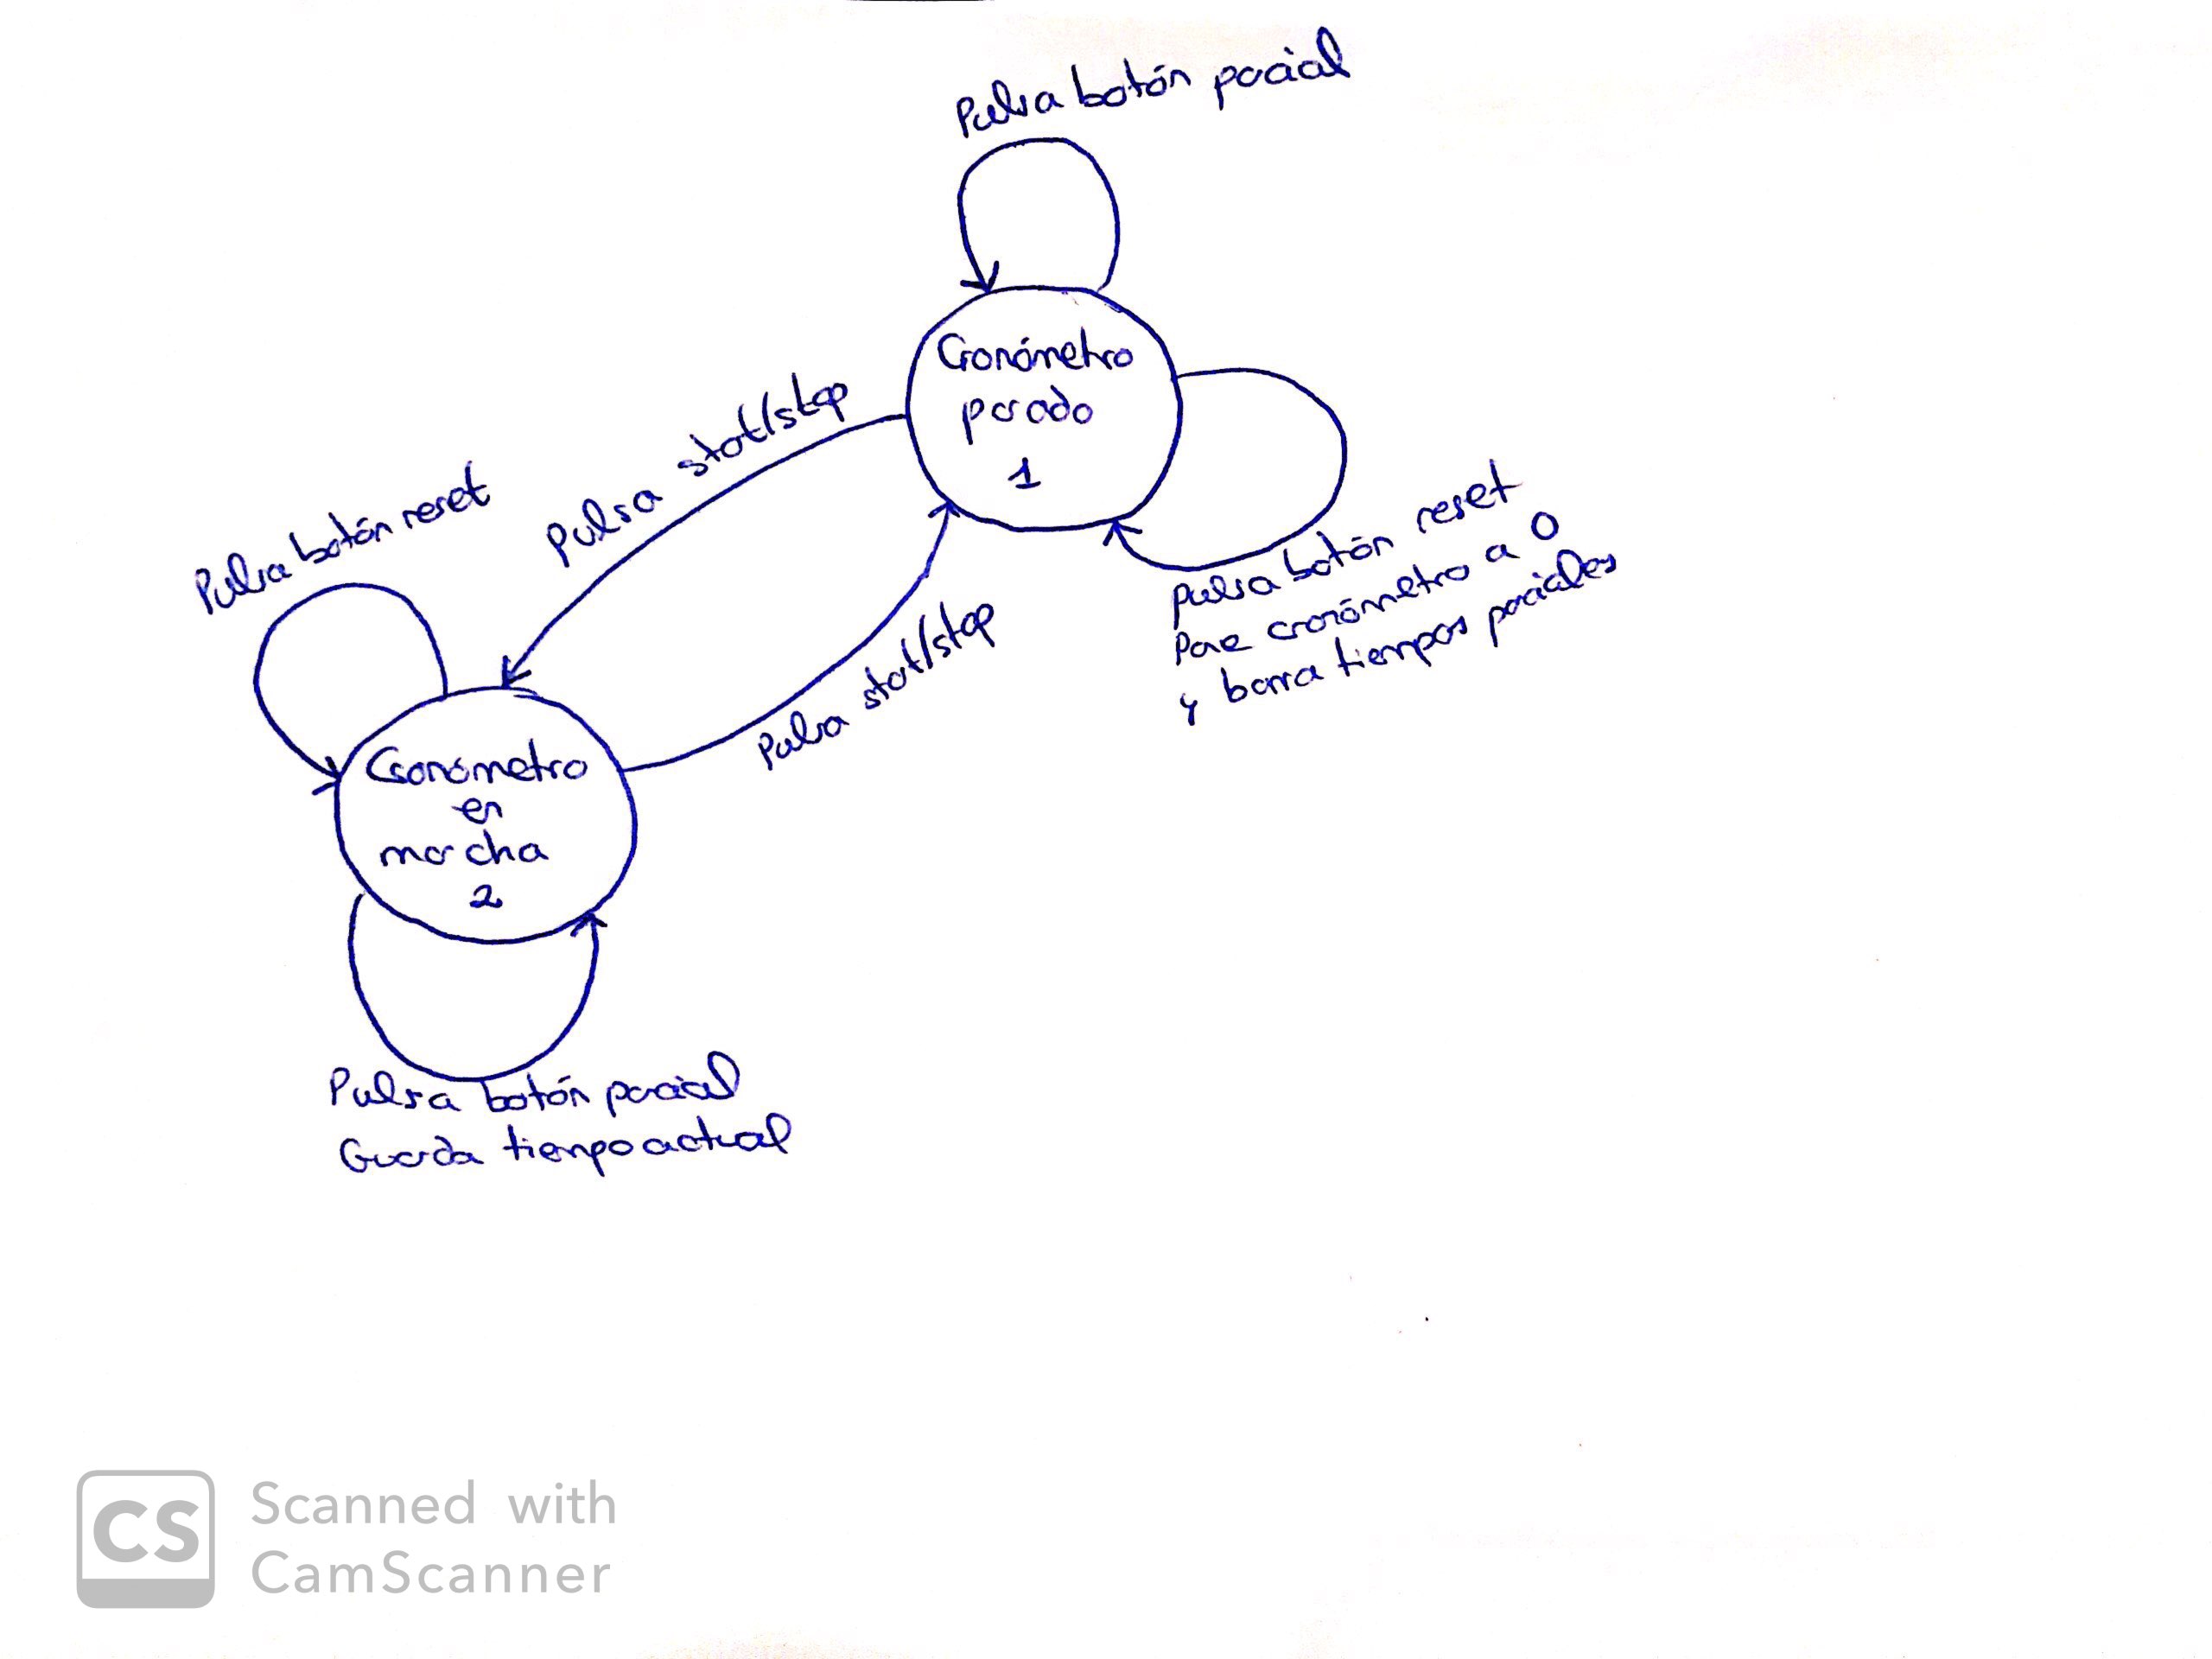 Pulsa botón parcial
Cronómetro
parado
1
Pulsa start/stop
Pulsa botón reset
pulsa botón reset
Pone cronómetro a 0
y borra tiempos parciales
Pulsa start/stop
Cronómetro
en
marcha
2
Pulsa botón parcial
Guarda tiempo actual
CS
Scanned with
CamScanner